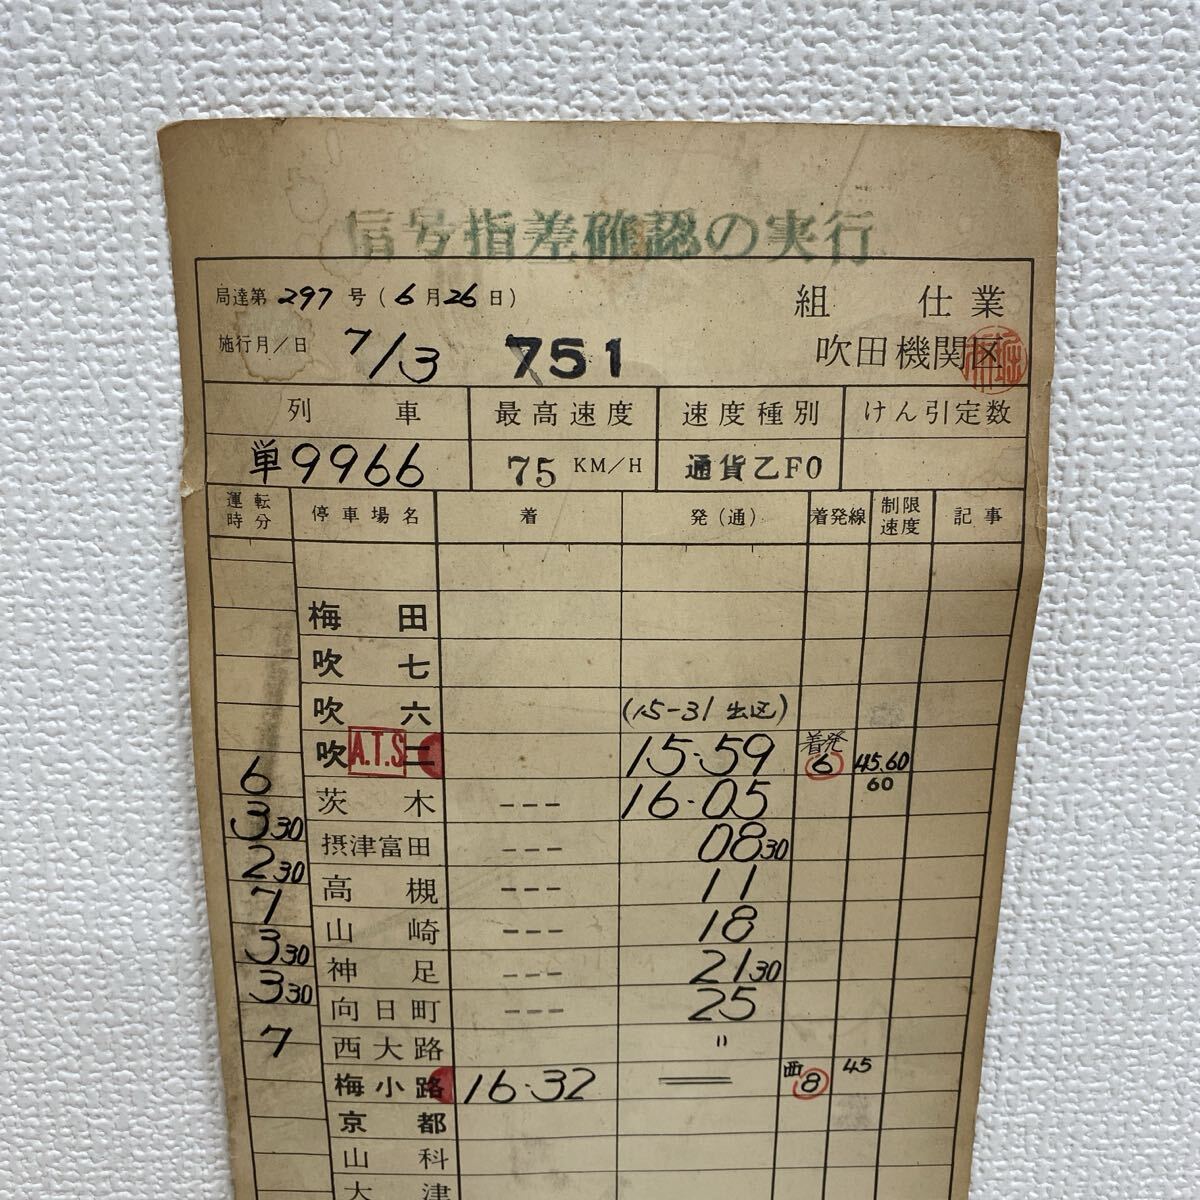 信号指差確認の実行
局達第 297 号 ( 6 月 26 日)
組 仕業
施行月/日 7/3 751 吹田機関区
列車 最高速度 速度種別 けん引定数
単9966 75 KM/H 通貨乙F0
運転時分 停車場名 着 発(通) 着発線 制限速度 記事
梅田
吹七
吹六 (15-31 出区)
吹二 A.T.S 15-59 着発 6 45.60
6 60
茨木 --- 16-05
3 30
摂津富田 --- 08 30
2 30
高槻 --- 11
7
山崎 --- 18
3 30
神足 --- 21 30
3 30
向日町 --- 25
7
西大路 〃
梅小路 16-32 = 西 8 45
京都
山科
大津